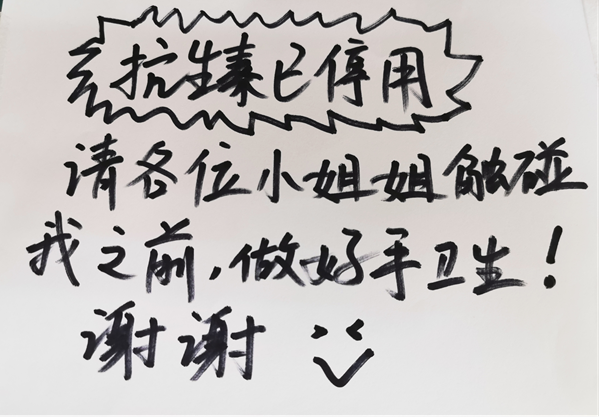 抗生素已停用
请各位小姐姐触碰
我之前,做好手卫生!
谢谢